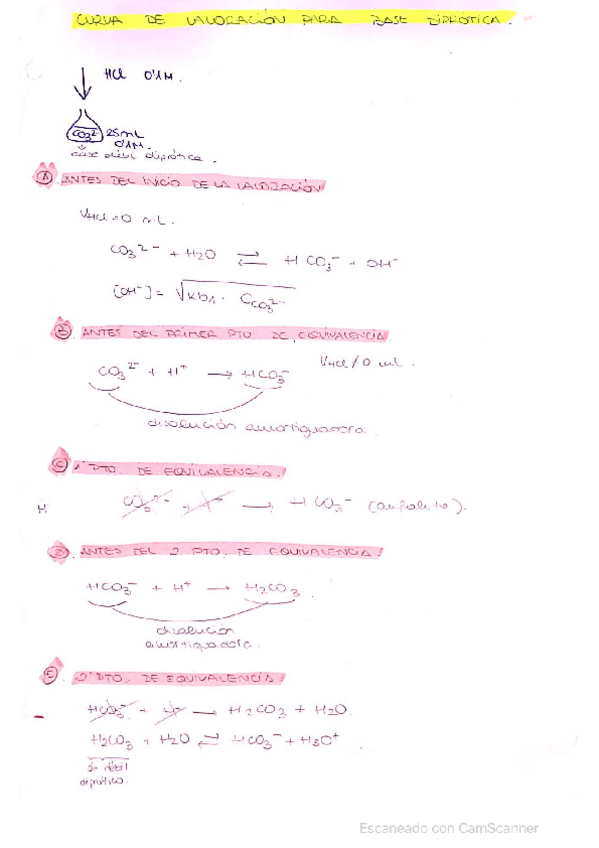 CURVA DE VALORACIÓN PARA BASE DIPRÓTICA.
HCl 0'1M.
CO3 2- 25mL
0'1M.
base débil diprótica.
A ANTES DEL INICIO DE LA VALORACIÓN
VHCl = 0 mL.
CO3 2- + H2O ⇌ HCO3- + OH-
[OH-] = √Kb1 · CCO3 2-
B ANTES DEL PRIMER PTO DE EQUIVALENCIA
CO3 2- + H+ → HCO3- VHCl / 0 mL.
disolución amortiguadora.
C 1º PTO. DE EQUIVALENCIA!
H CO3 2- + H+ → HCO3- (anfolito).
D. ANTES DEL 2 PTO. DE EQUIVALENCIA!
HCO3- + H+ → H2CO3.
disolución
amortiguadora.
E. 2º PTO. DE EQUIVALENCIA!
HCO3- + H+ → H2CO3 + H2O.
H2CO3 + H2O ⇌ HCO3- + H3O+
débil
diprótico.
Escaneado con CamScanner